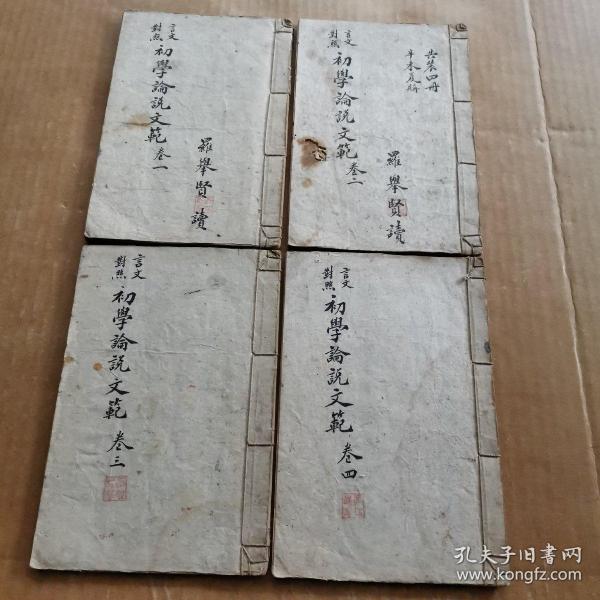 言文
對照
初學論説文範 卷一
羅舉賢讀
共裝四冊
辛未夏
言文
對照
初學論説文範 卷二
羅舉賢讀
言文
對照
初學論説文範 卷三
言文
對照
初學論説文範 卷四
孔夫子旧书网
www.kongfz.com